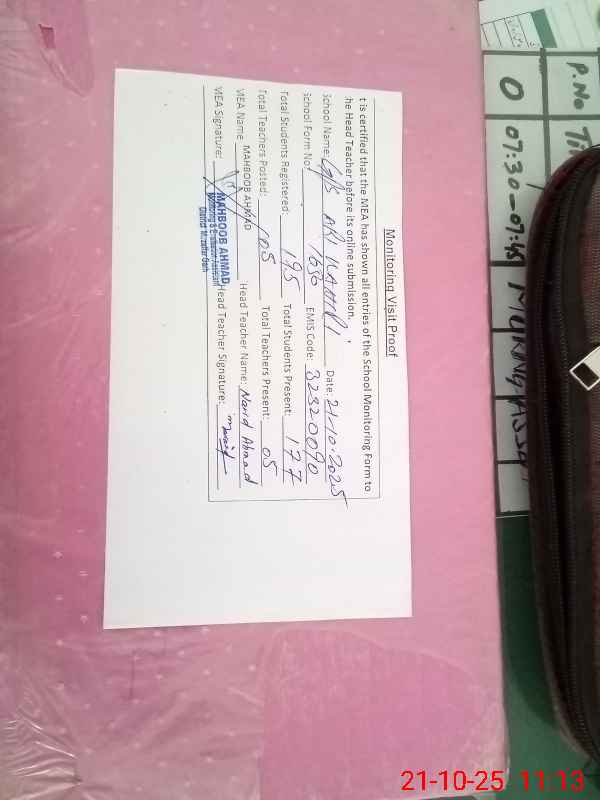 Monitoring Visit Proof
t is certified that the MEA has shown all entries of the School Monitoring Form to
he Head Teacher before its online submission.
School Name: Date: 21-10-2025
School Form No: 1686 EMIS Code: 32320090
Total Students Registered: 195 Total Students Present: 177
Total Teachers Posted: 05 Total Teachers Present: 05
MEA Name MAHBOOB AHMAD Head Teacher Name: Navid Ahmad
MEA Signature: Head Teacher Signature:
MAHBOOB AHMAD
Monitoring & Evaluation Assistant
District Muzaffar Garh
P.No
0 07:30-07:45
21-10-25 11:13